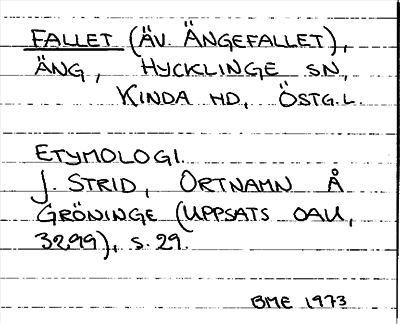 FALLET (ÄV. ÄNGEFALLET),
ÄNG, HYCKLINGE SN,
KINDA HD, ÖSTG.L.
ETYMOLOGI.
J. STRID, ORTNAMN Å
GRÖNINGE (UPPSATS OAU,
3299), S. 29.
BME 1973